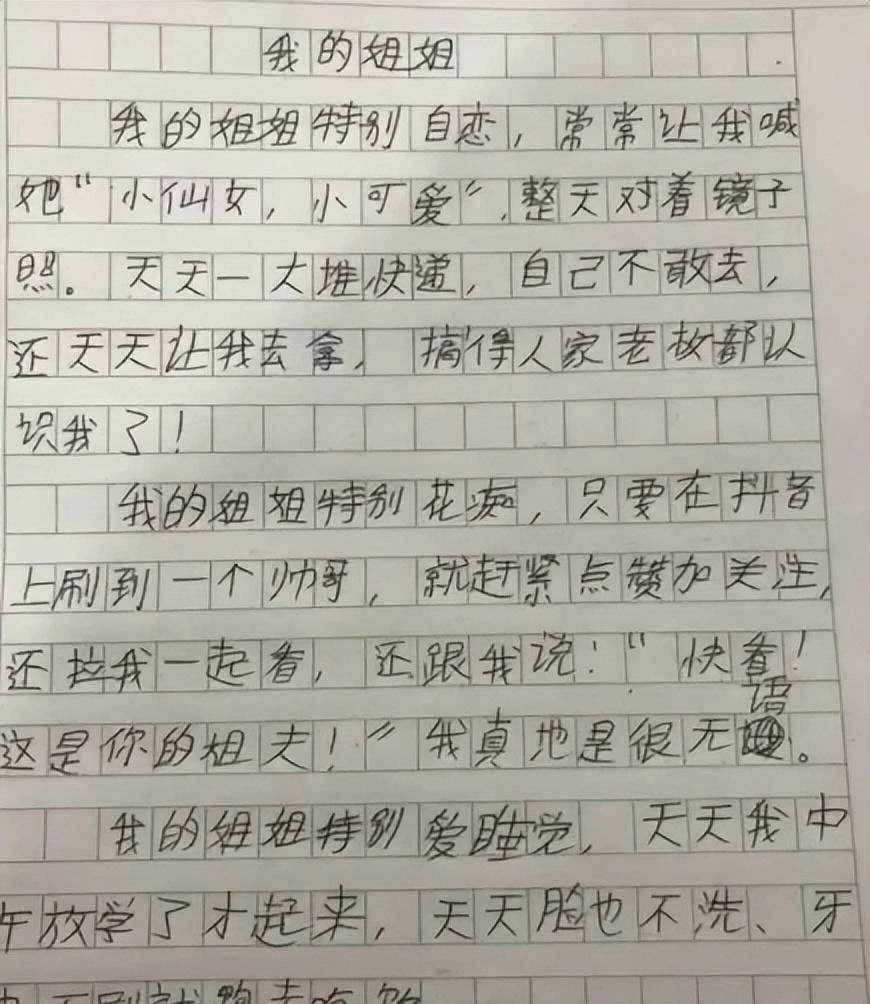 我的姐姐
我的姐姐特别自恋，常常让我喊
她“小仙女，小可爱”，整天对着镜子
照。天天一大堆快递，自己不敢去，
还天天让我去拿，搞得人家老板都认
识我了！
我的姐姐特别花痴，只要在抖音
上刷到一个帅哥，就赶紧点赞加关注，
还拉我一起看，还跟我说：“快看！
这是你的姐夫！”我真地是很无语。
我的姐姐特别爱睡觉，天天我中
午放学了才起来，天天脸也不洗、牙
也不刷就跑去吃饭